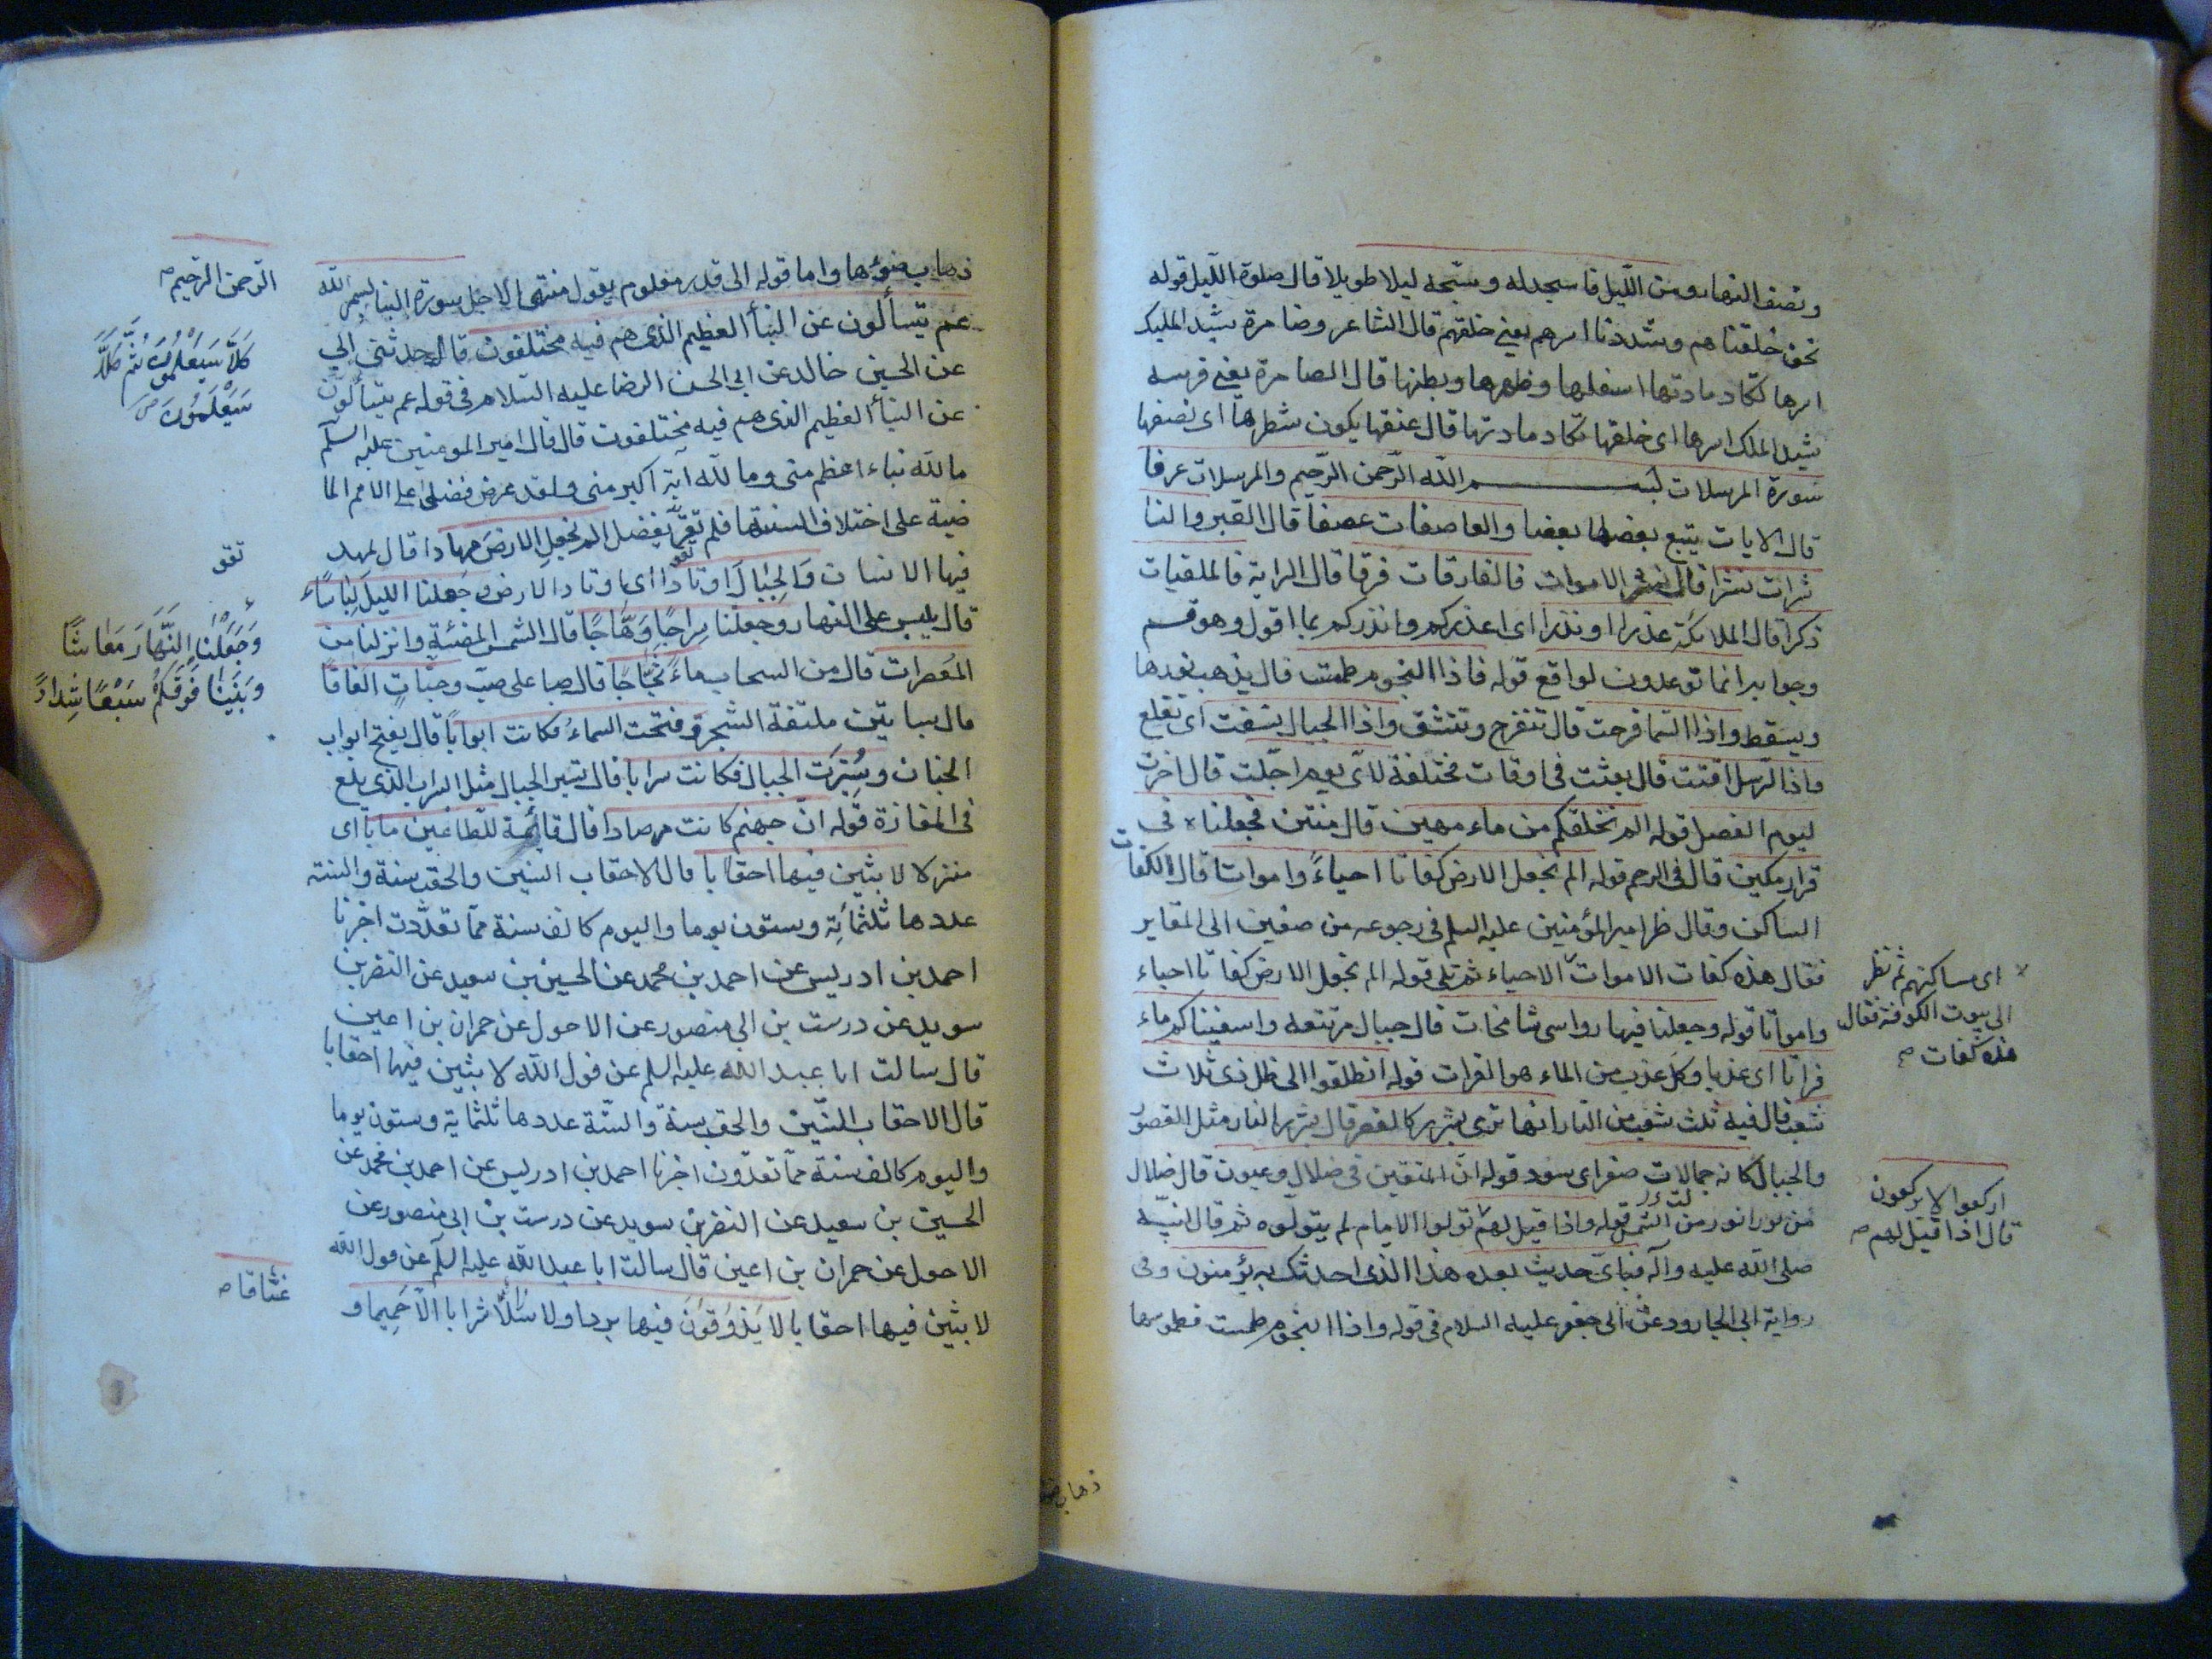 ونصف النهار ومن اللّيل فاسجد له وسبّحه ليلا طويلا قال صلوة اللّيل قوله
نحن خلقناهم وشددنا اسرهم يعني خلقهم قال الشاعر وضامرة شيد المليك
اسرها تكاد مادتها اسفلها وظهرها وبطنها قال الضامرة يعني فرسه
شيد الملك اسرها اى خلقها تكاد مادتها قال عنقها يكون شطرها اى نصفها
سورة المرسلات بسم الله الرّحمن الرّحيم والمرسلات عرفا
قال الايات يتبع بعضها بعضا والعاصفات عصفا قال القبر والنا
شرات نشرا قال نشر الاموات فالفارقات فرقا قال الرابة فالملقيات
ذكرا قال الملائكة عذرا او نذرا اى اعذركم وانذركم بما اقول وهو قسم
وجوابه انما توعدون لواقع قوله فاذا النجوم طمست قال يذهب نورها
ويسقط واذا السّما فرجت قال تنفرج وتنشق واذا الجبال نسفت اى تقلع
واذا الرّسل اقتت قال بعثت فى اوقات مختلفة لأىّ يوم اجّلت قال اخّرت
ليوم الفصل قوله الم نخلقكم من ماء مهين قال منتن فجعلناه فى
قرار مكين قال فى الرحم قوله الم نجعل الارض كفاتا احياءً وامواتا قال الكفات
المساكن وقال نظر امير المؤمنين عليه السلم فى رجوعه من صفين الى المقابر
فقال هذه كفات الاموات الاحياء ثم تلى قوله الم نجعل الارض كفاتا احياء
وامواتا قوله وجعلنا فيها رواسى شامخات قال جبال مرتفعه واسقيناكم ماء
فراتا اى عذبا وكل عذب من الماء هو الفرات قوله انطلقوا الى ظل ذى ثلاث
شعب قال فيه ثلث شعب من النار انها ترمى بشرر كالقصر قال شرر النار مثل القصور
والجبال كانه جمالات صفر اى سود قوله انّ المتقين فى ظلال وعيون قال ظلال
من نور انور من الشمس قوله واذا قيل لهم تولوا الامام لم يتولّوه ثم قال لنبيّه
صلى الله عليه وآله فبأىّ حديث بعده هذا الذى احدثك به يؤمنون وفى
رواية ابى الجارود عن ابى جعفر عليه السلام فى قوله واذا النجوم طمست فطموسها
اى مساكنهم ثم نظر
الى بيوت الكوفة فقال
هذه كفات
اركعوا لا يركعون
قال اذا قيل لهم
ذهاب ضو
ذهاب ضوئها واما قوله الى قدر معلوم يقول منتهى الاجل سورة النبا بسم الله
عم يتسألون عن النبأ العظيم الذى هم فيه مختلفون قال حدثنى ابى
عن الحسين خالد عن ابى الحسن الرضا عليه السلام فى قوله عم يتسألون
عن النبأ العظيم الذى هم فيه مختلفون قال قال امير المومنين عليه السلم
ما لله نباء اعظم منى وما لله آية اكبر منى ولقد عرض فضلى على الامم الما
ضية على اختلاف السنتها فلم تقرّ بفضلى الم نجعل الارض مهادا قال يمهد
فيها الانسان والجبال اوتادا اى اوتاد الارض وجعلنا الليل لباساً
قال يلبس على النهار وجعلنا سراجًا وهّاجًا قال الشمس المضيئة وانزلنا من
المعصرات قال من السحاب ماءً ثجّاجًا قال صبا على صبّ وجنّاتٍ الفافًا
قال بساتين ملتفة الشجر وفتحت السماءُ فكانت ابواباً قال يفتح ابواب
الجنان وسُيّرت الجبال فكانت سرابا قال تسير الجبال مثل السراب الذى يلمع
فى المفازة قوله انّ جهنم كانت مرصادا قال قائمة للطّاغين مابا اى
منزلا لابثين فيها احقابا قال الاحقاب السنين والحقب سنة والسنة
عددها ثلثمائة وستون يوما واليوم كالف سنة ممّا تعدّون اخبرنا
احمد بن ادريس عن احمد بن محمد عن الحسين بن سعيد عن النضر بن
سويد عن درست بن ابى منصور عن الاحول عن حمران بن اعين
قال سالت ابا عبد الله عليه السلم عن قول الله لابثين فيها احقابا
قال الاحقاب السنين والحقب سنة والسّنة عددها ثلثمائة وستون يوما
واليوم كالف سنة ممّا تعدّون اخبرنا احمد بن ادريس عن احمد بن محمد عن
الحسين بن سعيد عن النضر بن سويد عن درست بن ابى منصور عن
الاحول عن حمران بن اعين قال سالت ابا عبد الله عليه السلم عن قول الله
لابثين فيها احقابا لا يذوقون فيها بردا ولا شرابا الّا حميما و
الرّحمن الرّحيم
كلّا سيعلمون ثمّ كلّا
سيعلمون
وجعلنا النّهار معاشًا
وبنينا فوقكم سبعًا شدادًا
غسّاقا